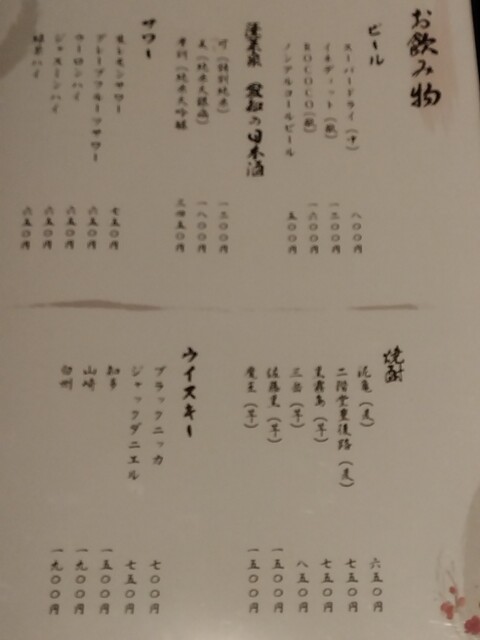 お飲み物
ビール
スーパードライ(中) 八〇〇円
イネディット(瓶) 一三〇〇円
ROCOCO(瓶) 一六〇〇円
ノンアルコールビール 五〇〇円
蓬莱泉 愛知の日本酒
可(特別純米) 一三〇〇円
美(純米大吟醸) 一八〇〇円
(純米大吟醸) 三四五〇円
サワー
生レモンサワー 七五〇円
グレープフルーツサワー 六五〇円
ウーロンハイ 六五〇円
ジャスミンハイ 六五〇円
緑茶ハイ 六五〇円
焼酎
泥亀(麦) 六五〇円
二階堂吉四六(麦) 七五〇円
黒霧島(芋) 七五〇円
三岳(芋) 八五〇円
佐藤黒(芋) 一五〇〇円
魔王(芋) 一五〇〇円
ウイスキー
ブラックニッカ 七〇〇円
ジャックダニエル 七五〇円
知多 一五〇〇円
山崎 一九〇〇円
白州 一九〇〇円